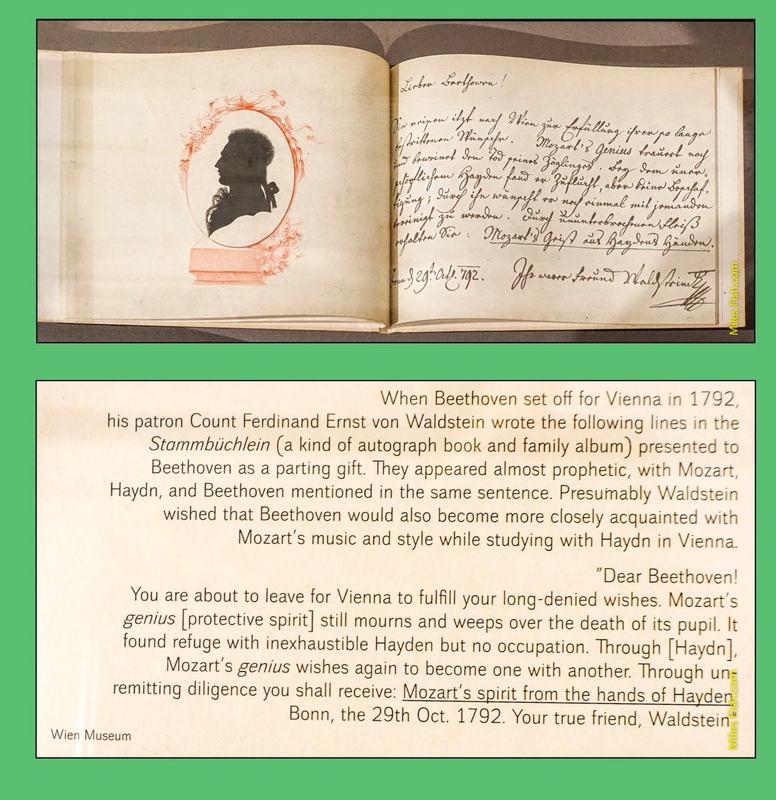 Lieber Beethowen!
Sie reisen itzt nach Wien zur Erfüllung ihrer so lange
bestrittenen Wünsche. Mozart's Genius trauert noch
und beweinet den Tod seines Zöglinges. Bey dem uner-
schöpflichem Hayden fand er Zuflucht, aber keine Beschäf-
tigung; durch ihn wünscht er noch einmal mit jemanden
vereinigt zu werden. Durch ununterbrochenen Fleiß
erhalten Sie: Mozart's Geist aus Haydens Händen.
d 29t Oct. 792. Ihr warer Freund Waldstein
Miles Fish.com
When Beethoven set off for Vienna in 1792,
his patron Count Ferdinand Ernst von Waldstein wrote the following lines in the
Stammbüchlein (a kind of autograph book and family album) presented to
Beethoven as a parting gift. They appeared almost prophetic, with Mozart,
Haydn, and Beethoven mentioned in the same sentence. Presumably Waldstein
wished that Beethoven would also become more closely acquainted with
Mozart's music and style while studying with Haydn in Vienna.
"Dear Beethoven!
You are about to leave for Vienna to fulfill your long-denied wishes. Mozart's
genius [protective spirit] still mourns and weeps over the death of its pupil. It
found refuge with inexhaustible Hayden but no occupation. Through [Haydn],
Mozart's genius wishes again to become one with another. Through un-
remitting diligence you shall receive: Mozart's spirit from the hands of Hayden
Bonn, the 29th Oct. 1792. Your true friend, Waldstein"
Wien Museum
Miles Fish.com